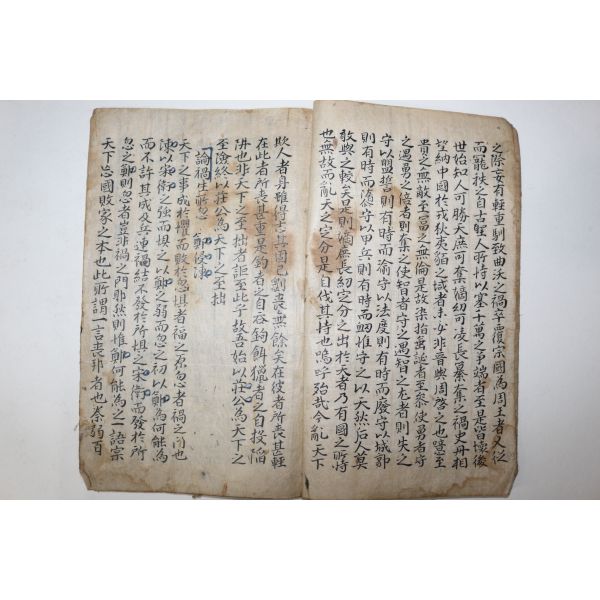 之際妄有輕重馴致曲沃之禍卒覆宗國為周王者又從
而寵秩之自古聖人所恃以塞千萬之爭端者至是皆壞後
世始知人可勝天庶可奪嫡幼可凌長簒奪之禍史冊相
望納中國於戎狄夷貊之域者未必非晉與周啓之噫至
貴之無敵至富之無倫是故染指垂涎者至衆使勇者守
之遇勇之倍者則奪之使智者守之遇智之尤者則失之
守以盟誓則有時而渝守以法度則有時而廢守以城郭
則有時而隳守以甲兵則有時而衂惟守之以天然后人莫
敢與之較矣是則嫡庶長幼定分之出於天者乃有國之所恃
也無故而亂天之定分是自伐其恃也嗚呼殆哉今亂天下
欺人者身雖得志其國已斲喪無餘矣在彼者所喪甚輕
在此者所喪甚重是鉤者之自呑鉤餌獵者之自投陷
阱也非天下之至拙者詎至此乎故吾始以莊公為天下之
至險終以莊公為天下之至拙
論禍生所忽 鄭侵陳
天下之事成於懼而敗於忽懼者福之原忽者禍之門也
陳以宋衛之強而懼之以鄭之弱而忽之初以鄭為何能為
而不許其成及兵連禍結不發於所懼之宋衛而發於所
忽之鄭則忽者豈非禍之門耶然則惟鄭何能為之一語宗
天下亡國敗家之本也此所謂一言喪邦者也秦弱百